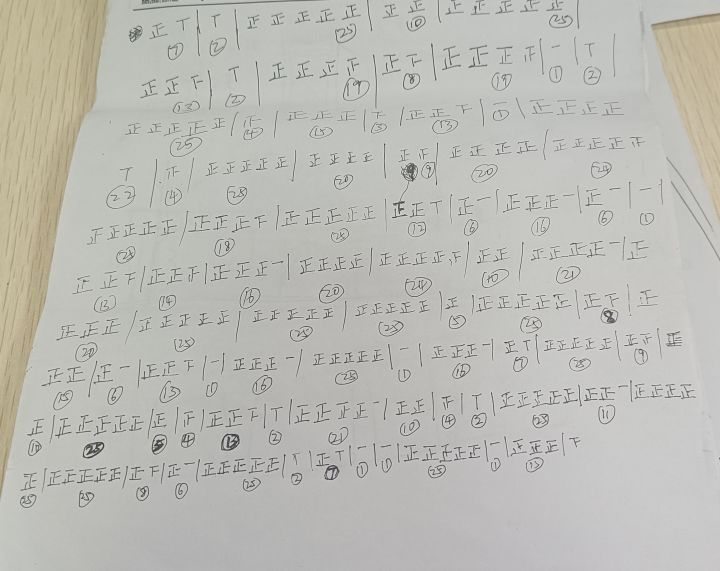 正 丅 | 丅 | 正 正 正 正 正 | 正 正 | 正 正 正 正 正 |
⑦ ② ㉕ ⑩ ㉕
正 正 下 | 丅 | 正 正 正 𤴓 | 正 下 | 正 正 正 𤴓 | 一 | 丅 |
⑬ ② ⑲ ⑧ ⑲ ① ②
正 正 正 正 正 | 𤴓 | 正 正 正 | 下 | 正 正 下 | 一 | 正 正 正 正
㉕ ④ ⑮ ③ ⑬ ①
丅 | 𤴓 | 正 正 正 正 正 | 正 正 正 正 | 正 𤴓 | 正 正 正 正 | 正 正 正 正 𤴓
㉒ ④ ㉕ ⑳ ⑨ ⑳ ㉔
正 正 正 正 正 | 正 正 正 下 | 正 正 正 正 正 | 正 正 丅 | 正 一 | 正 正 正 一 | 正 一 | 一 |
㉕ ⑱ ㉕ ⑫ ⑥ ⑯ ⑥ ①
正 正 下 | 正 正 𤴓 | 正 正 正 一 | 正 正 正 正 | 正 正 正 正 𤴓 | 正 正 | 正 正 正 正 一 | 正
⑬ ⑭ ⑯ ⑳ ㉔ ⑩ ㉑
正 正 正 | 正 正 正 正 正 | 正 正 正 正 正 | 正 正 正 正 正 | 正 | 正 正 正 正 正 | 正 下 | 正
⑳ ㉕ ㉕ ㉕ ⑤ ㉕ ⑧
正 正 | 正 一 | 正 正 下 | 一 | 正 正 正 一 | 正 正 正 正 正 | 一 | 正 正 正 一 | 正 丅 | 正 正 正 正 正 | 正 𤴓 | 正
⑮ ⑥ ⑬ ① ⑯ ㉕ ① ⑯ ⑦ ㉕ ⑨
正 | 正 正 正 正 正 | 正 | 𤴓 | 正 正 下 | 丅 | 正 正 正 正 一 | 正 正 | 𤴓 | 丅 | 正 正 正 正 正 | 正 正 一 | 正 正 正 正
⑩ ㉕ ⑤ ④ ⑬ ② ㉑ ⑩ ④ ② ㉕ ⑪
正 | 正 正 正 正 正 | 正 下 | 正 一 | 正 正 正 正 正 | 丅 | 正 丅 | 一 | 一 | 正 正 正 正 正 | 一 | 正 正 正 | 下
㉕ ㉕ ⑧ ⑥ ㉕ ② ⑦ ① ① ㉕ ① ⑮